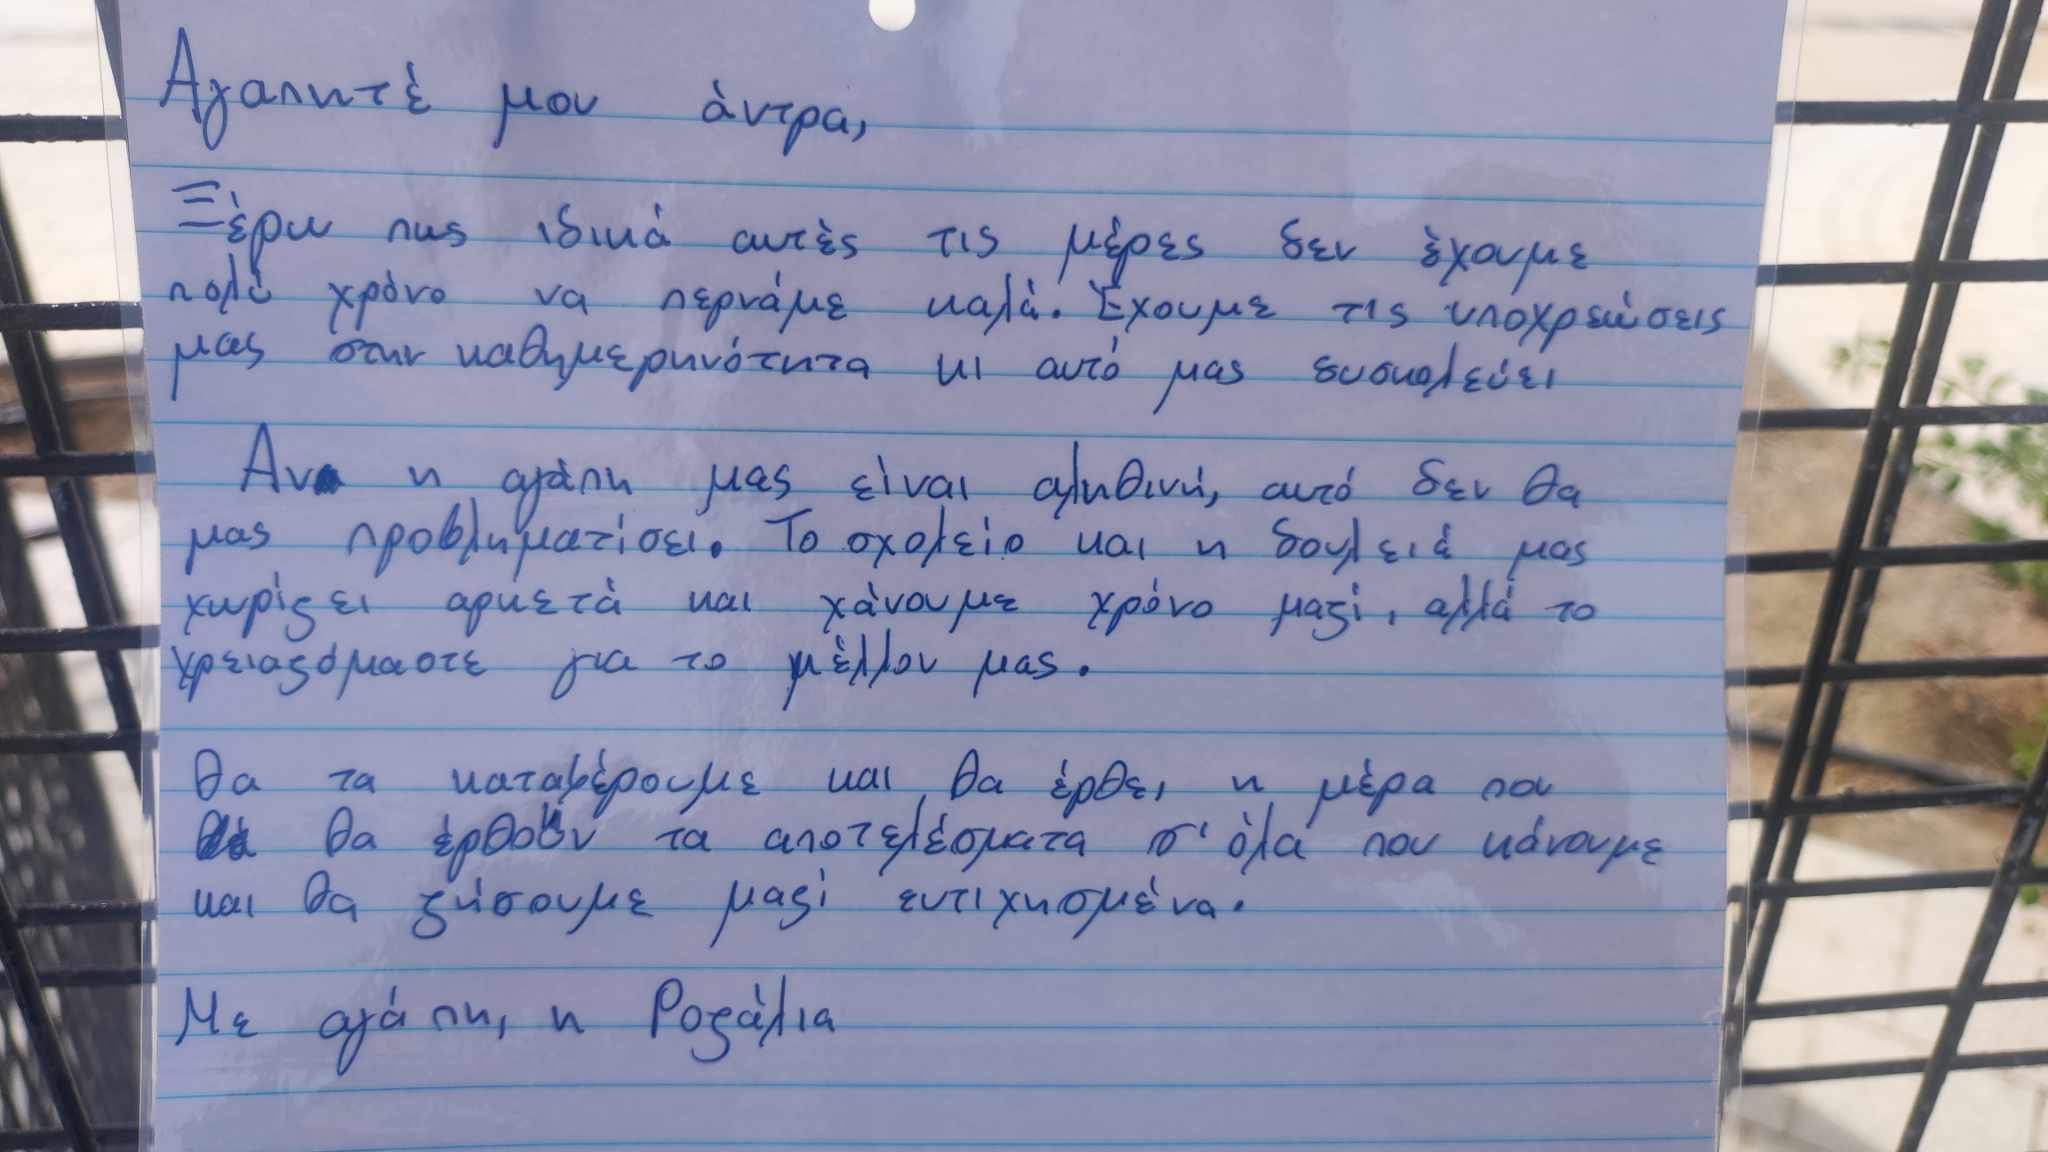 Αγαπητέ μου άντρα,
Ξέρω πως ιδικά αυτές τις μέρες δεν έχουμε
πολύ χρόνο να περνάμε καλά. Έχουμε τις υποχρεώσεις
μας στην καθημερηνότητα κι αυτό μας συσκολεύει
Αν η αγάπη μας είναι αληθινή, αυτό δεν θα
μας προβληματίσει. Το σχολείο και η δουλειέ μας
χωρίζει αρκετά και χάνουμε χρόνο μαζί, αλλά το
χρειαζόμαστε για το μέλλον μας.
Θα τα καταφέρουμε και θα έρθει η μέρα που
θα έρθουν τα αποτελέσματα σ' όλα που κάνουμε
και θα ζήσουμε μαζί ευτιχησμένα.
Με αγάπη, η Ροζάλια